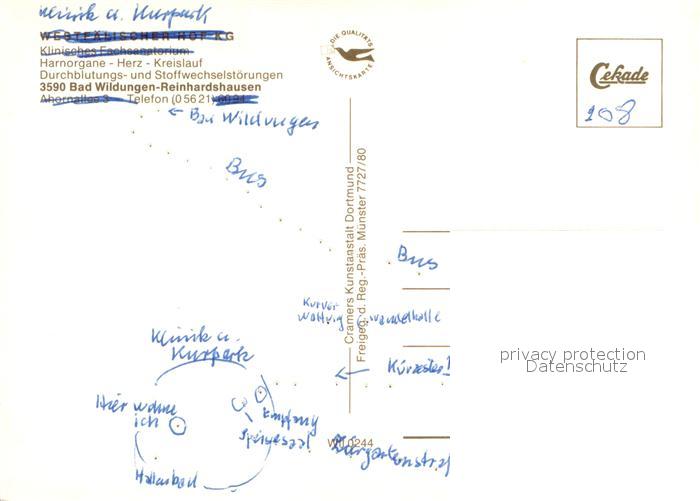 Klinik a. Kurpark
WESTFÄLISCHER HOF KG
Klinisches Fachsanatorium
Harnorgane - Herz - Kreislauf
Durchblutungs- und Stoffwechselstörungen
3590 Bad Wildungen-Reinhardshausen
Ahornallee 3 Telefon (0 56 21)
← Bad Wildungen
Bus
DIE QUALITÄTS
ANSICHTSKARTE
Cekade
108
Cramers Kunstanstalt Dortmund
Freigeg. d. Reg.-Präs. Münster 7727/80
Bus
Wandelhalle
Klinik a.
Kurpark
← Kürzester
Hier wohne
ich
Empfang
Speisesaal
Hallenbad
privacy protection
Datenschutz